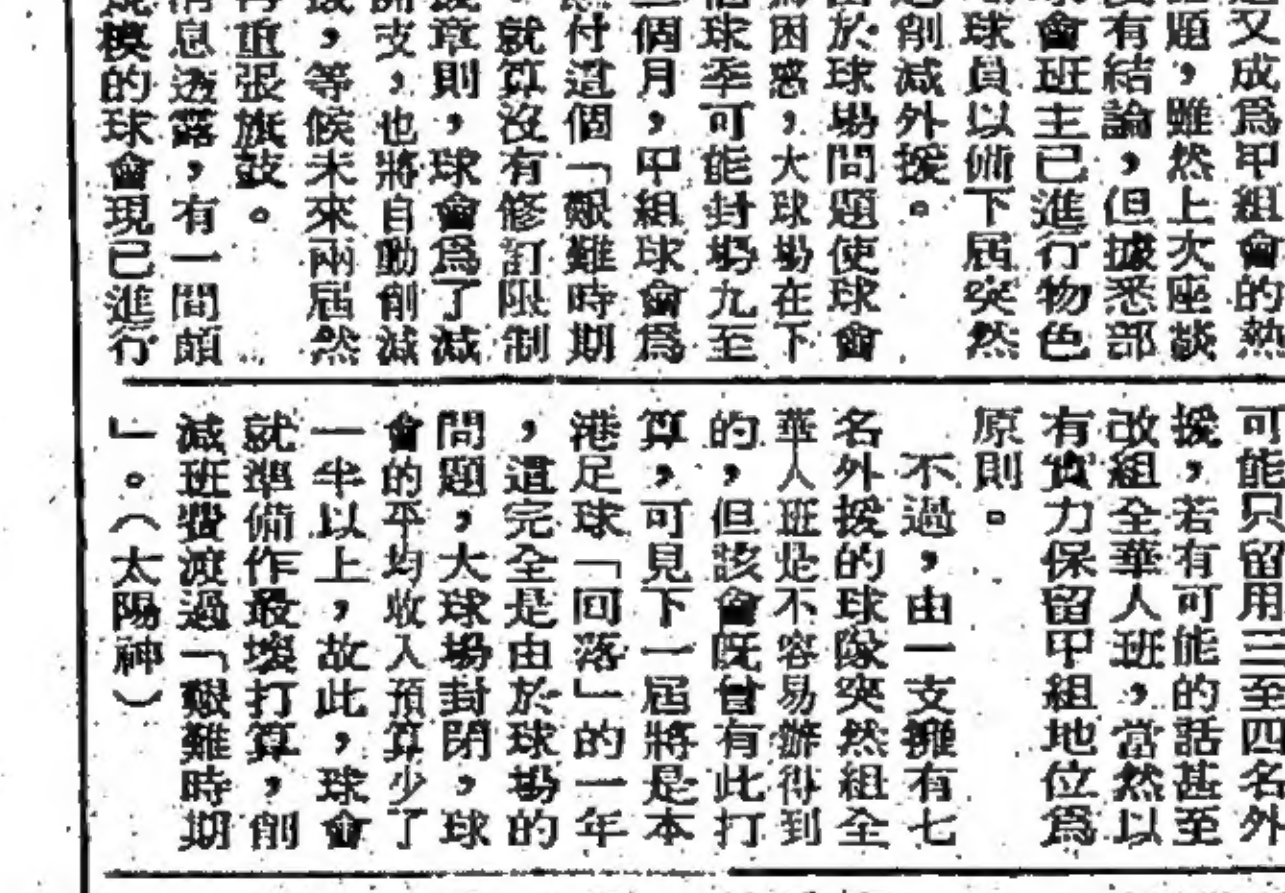 又成爲甲組會的熱
題，雖然上次座談
有結論，但據悉部
會班主已進行物色
球員以備下屆突然
削減外援。
於球場問題使球會
困惑，大球場在下
球季可能封場九至
個月，甲組球會爲
付這個「艱難時期
就算沒有修訂限制
章則，球會爲了減
支，也將自動削減
，等候未來兩屆然
重張旗鼓。
息透露，有一間頗
模的球會現已進行
可能只留用三至四名外
援，若有可能的話甚至
改組全華人班，當然以
有實力保留甲組地位爲
原則。
不過，由一支擁有七
名外援的球隊突然組全
華人班是不容易辦得到
的，但該會既曾有此打
算，可見下一屆將是本
港足球「回落」的一年
，這完全是由於球場的
問題，大球場封閉，球
會的平均收入預算少了
一半以上，故此，球會
就準備作最壞打算，削
減班費渡過「艱難時期
」。（太陽神）